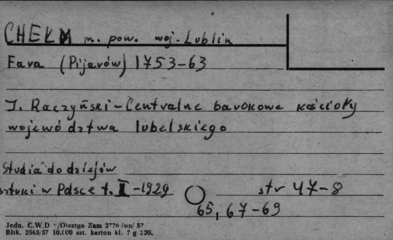 CHEŁM m. pow. woj. Lublin
Fara (Pijarów) 1753-63
J. Raczyński - Centralne barokowe kościoły
województwa lubelskiego
Studia do dziejów
sztuki w Polsce t. I - 1929 str 47-8
65, 67-69
Jedn. C.W.D Olsztyn Zam
Bltk. 2563/57 10.000 szt. karton kl. 7 g 220.